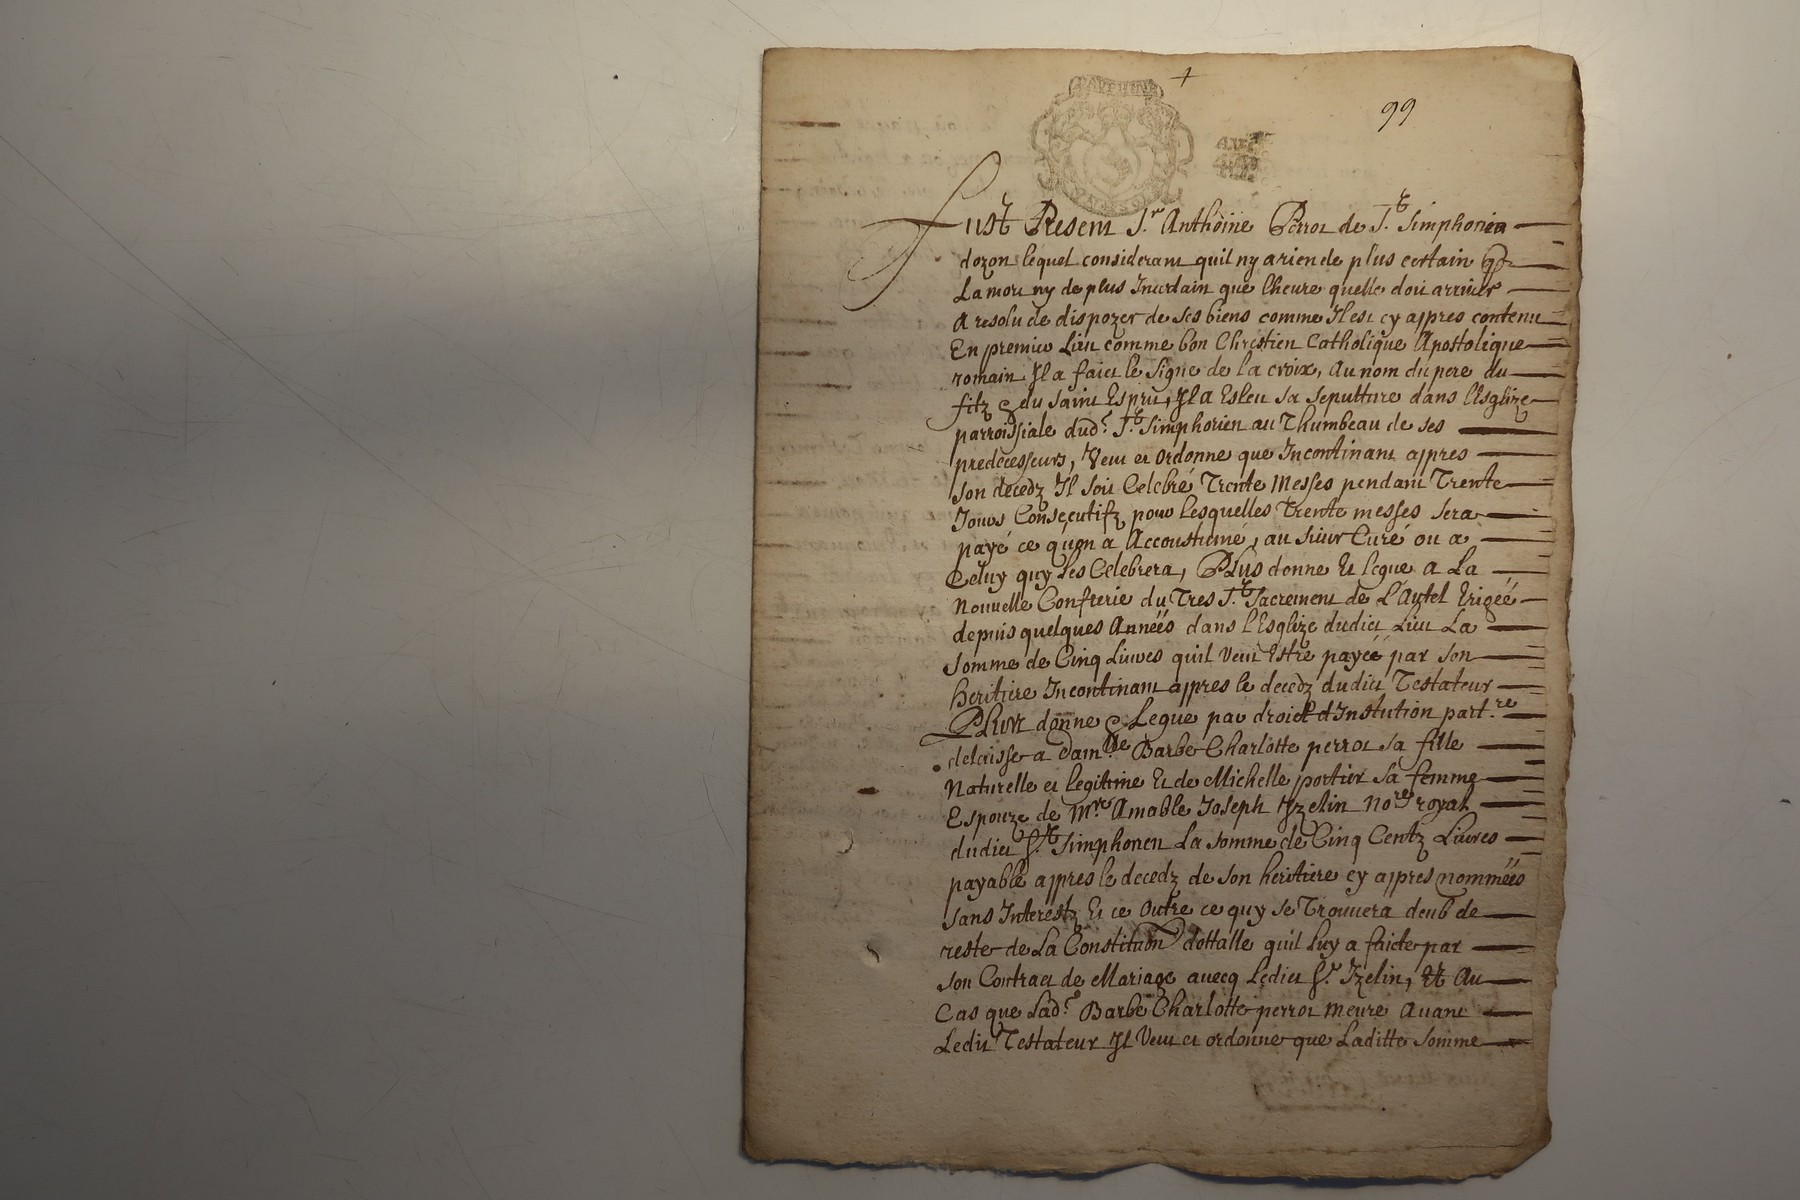 99
Fust Present Sr. Anthoine Perrot de St. Simphorien
dozon lequel considerant quil ny a rien de plus certain que
La mort ny de plus Incertain que lheure quelle doit arriver
A resolu de dispozer de ses biens comme Il est cy appres contenu
En premier Lieu comme bon Chrestien Catholique Apostolique
romain Il a faict le signe de la croix, Au nom du pere du
filz & du saint Esprit, Il a Esleu sa sepulture dans l'Esglize
parroissiale dud. St. Simphorien au Thumbeau de ses
predecesseurs, Veut et ordonne que Incontinant appres
son decedz Il soit Celebré Trente Messes pendant Trente
Jours Consecutifz pour lesquelles Trente messes sera
payé ce qu'on a Accoustumé, au sieur Curé ou a
Celuy quy les Celebrera, Plus donne Et legue a La
Nouvelle Confrerie du Tres St. Sacrement de L'Autel Erigéé
depuis quelques Annéés dans l'Esglize dudict Lieu La
somme de Cinq Livres quil Veut Estre payéé par son
heritiere Incontinant appres le decedz dudict Testateur
Plus donne & Legue par droict d'Instution part.re
delaisse a Dam.lle Barbe Charlotte perrot sa fille
Naturelle et legitime Et de Michelle portier sa femme
Espouze de Mre. Amable Joseph Izelin No.re royal
dudict St. Simphorien La somme de Cinq Centz Livres
payable appres le decedz de son heritiere cy appres nomméés
sans Interestz Et ce Outre ce quy se Trouvera deub de
reste de La Constitution dottalle quil luy a faicte par
son Contract de Mariage avecq Ledict Sr. Izelin, Et Au
Cas que Lad. Barbe Charlotte perrot meure Avant
Ledit Testateur Il Veut et ordonne que Laditte somme